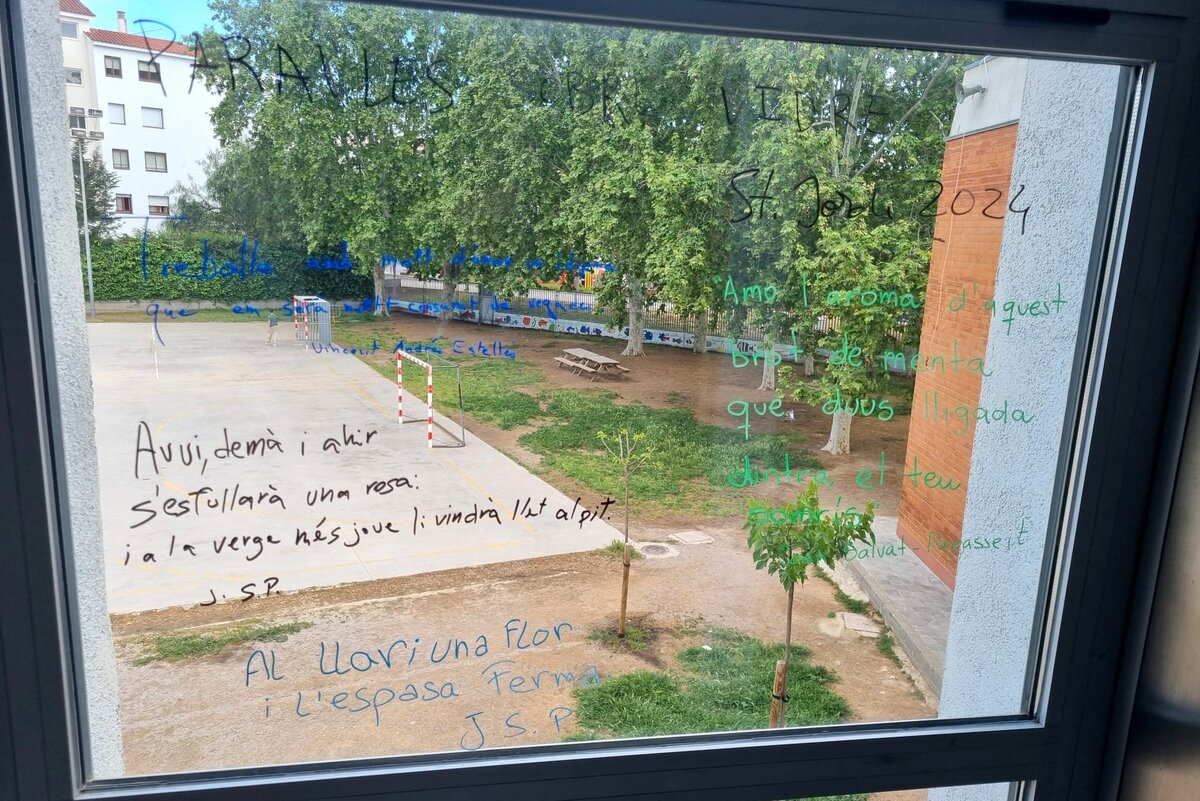 PARAULES
St. Jordi 2024
Treballa amb molt d'amor
que em serà molt
Vincent Andrés Estellés
"Amo l'aroma d'aquest
brot de menta
que duus lligada
dintra el teu
somrís
Salvat-Papasseit
Avui, demà i ahir
s'esfullarà una rosa:
i a la verge més jove li vindrà llet al pit.
J. S.P.
Al llavi una flor
i l'espasa ferma
J. S. P